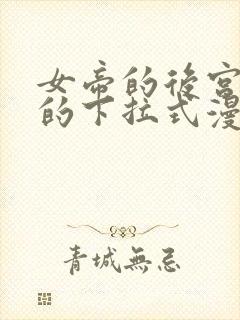 女帝的後宮
的下拉式漫
青城無忌